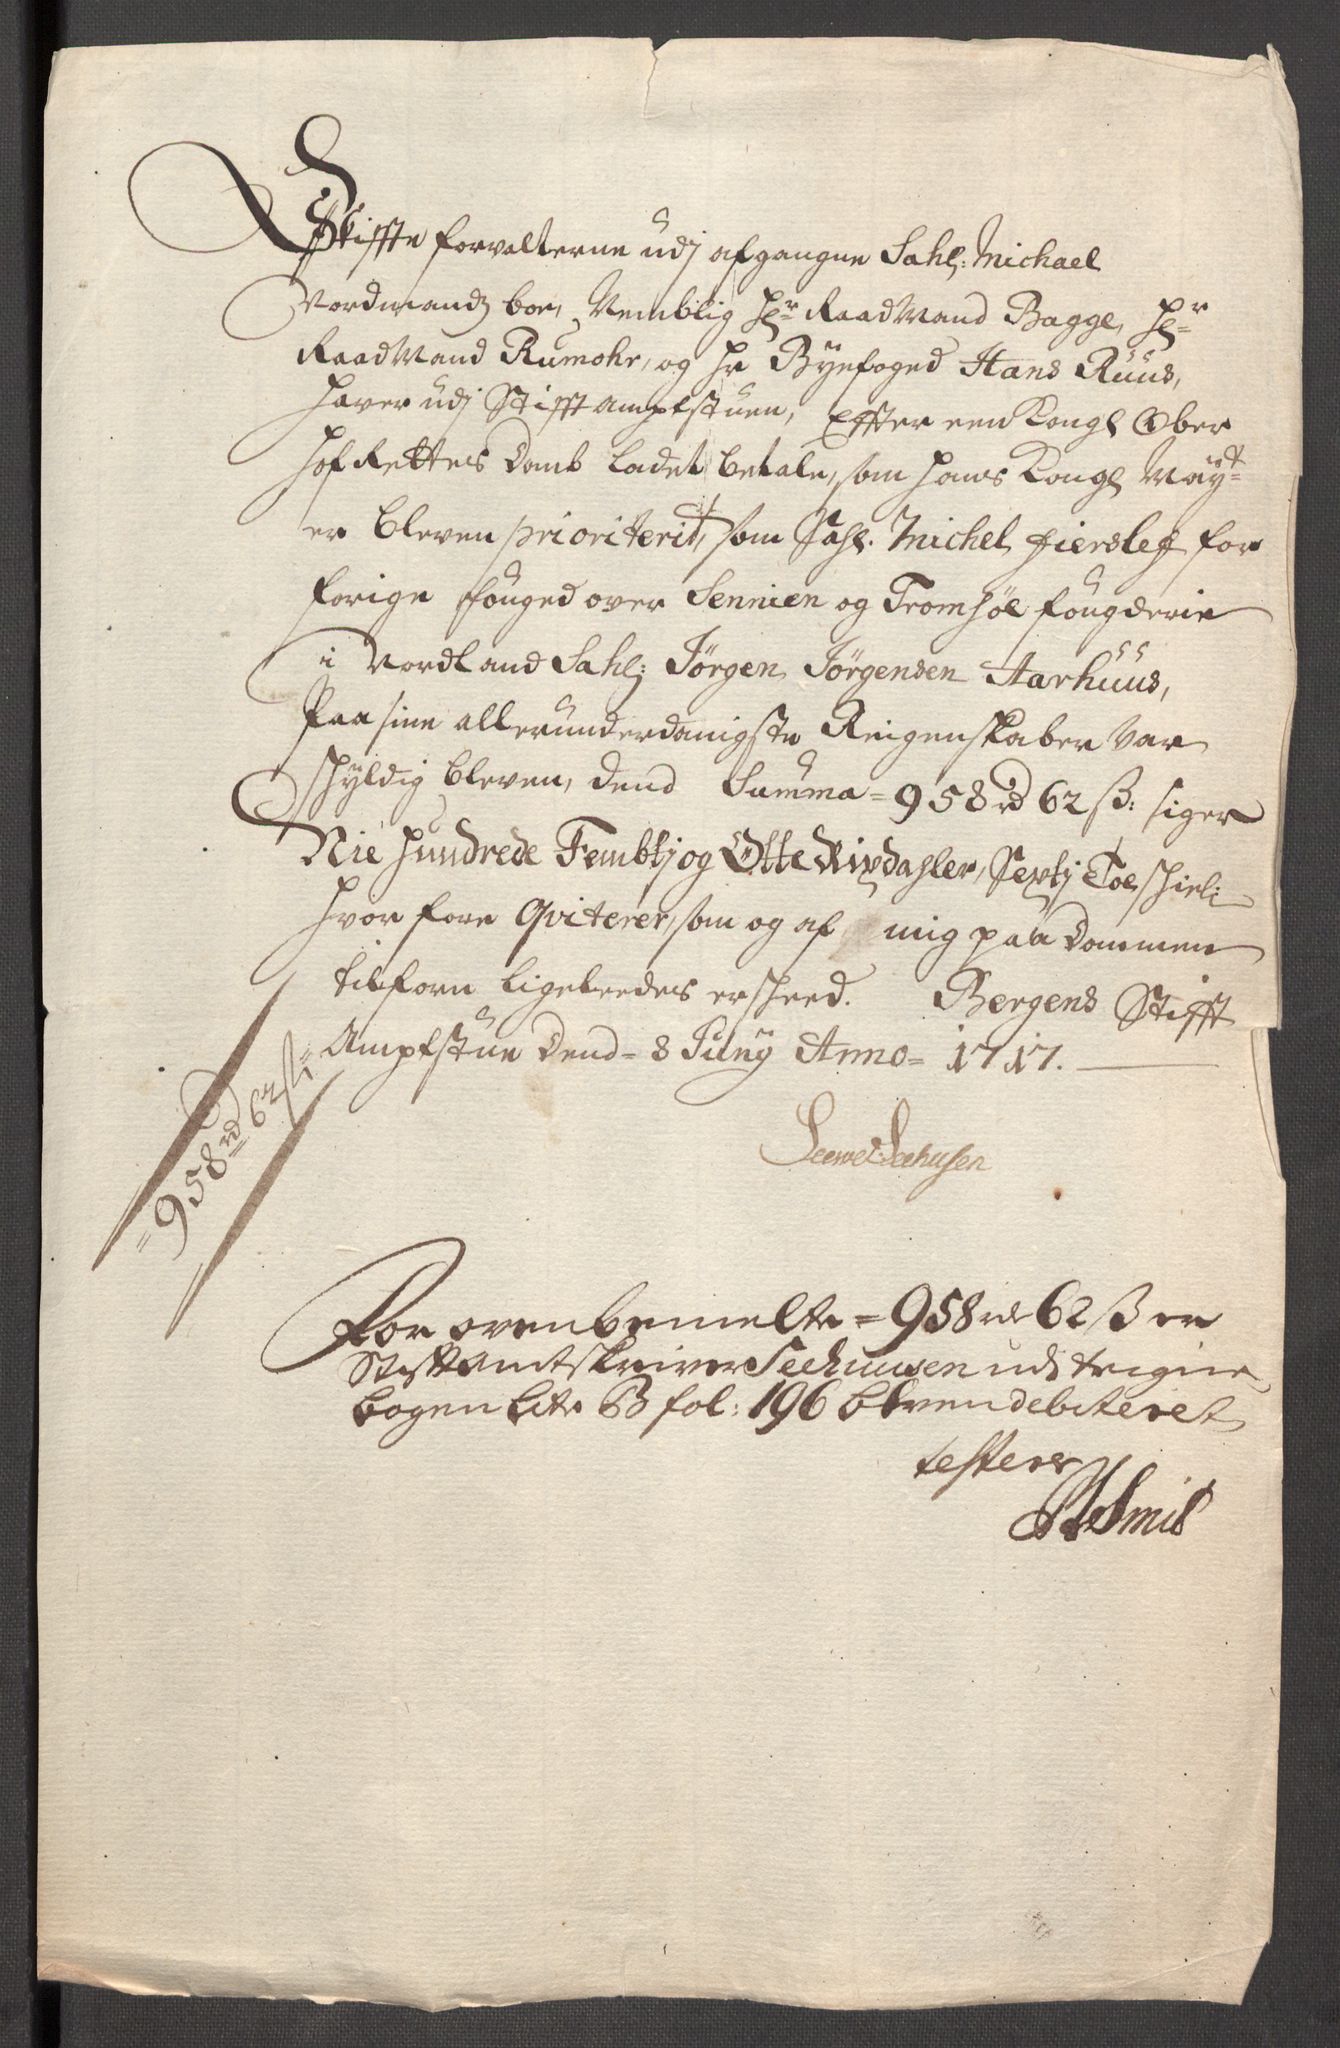 Skiffte forvalterne udj afgangne Sahl: Michael
Nordmands boe, Nemblig Hr: Raadmand Bagge, Hr:
Raadmand Rumohr, og Hr Byefoged Hans Ruus,
hafver udj Stifft ampstuen, Effter een Kongl Ober
hof Rettes Domb ladet betale, som hans Kongl May:t
er bleven prioriterit, som Sahl. Michel fierslef for
forige fouged over Sennien og Tromsøe fougderie
i Nordland Sahl: Jørgen Jørgensen Aarhuus,
Paa sine allerunderdanigste Reigenskaber var
skyldig bleven, dend Summa = 958 rd 62 ß: siger
Nie hundrede Fembtj og Otte Rixdahler, Sextj Toe skiel:
hvor fore Qviterer, som og af mig paa Dommen
tilforn ligeleedes er skeed. Bergens Stifft
Ampstue Dend = 8 Juny Anno = 1717.
= 958 rd 62 ß
Seewer Seehusen
For ovenbemelte = 958 rd 62 ß er
Stiftamtskriver Seehuusen udj
bogen Litr B fol: 196 bleven debiteret
testerer
Smit